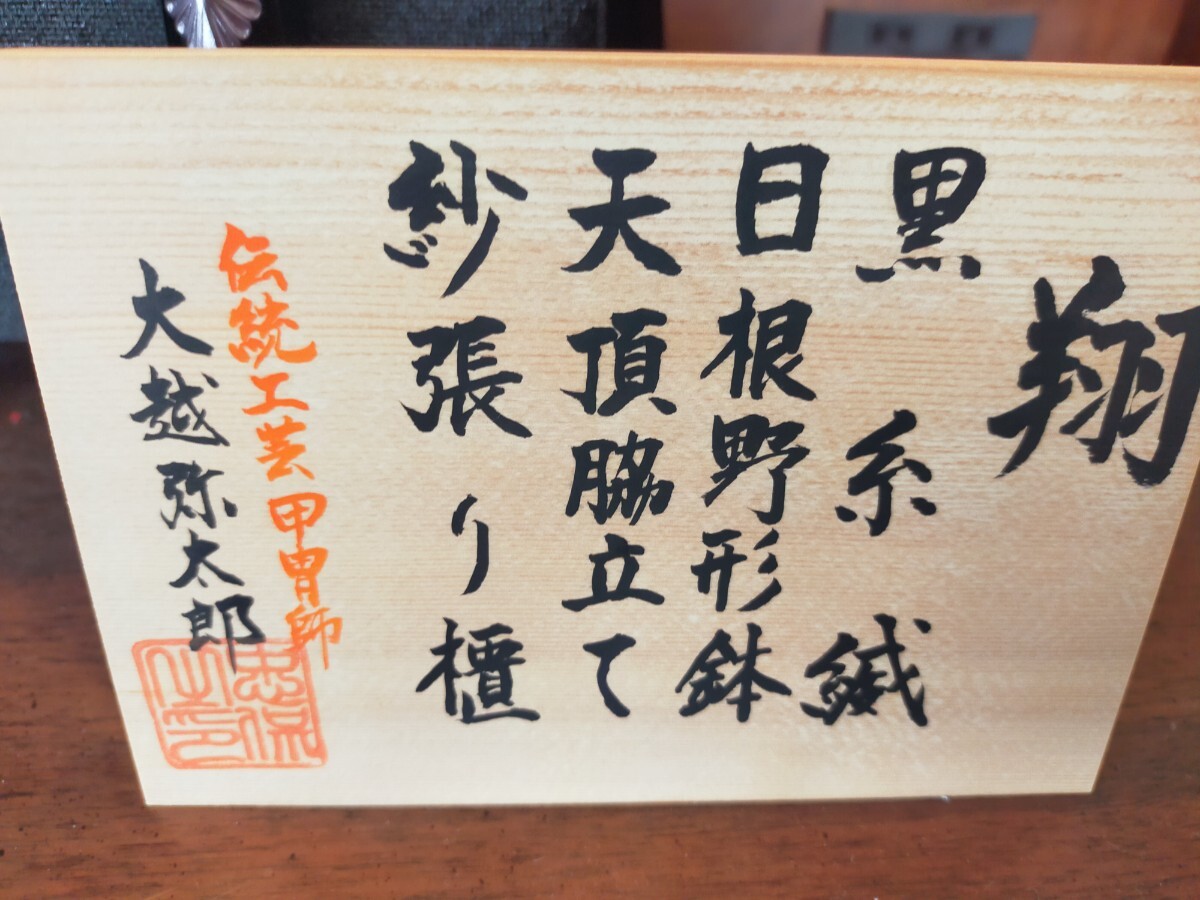 翔
黒糸縅
日根野形鉢
天頂脇立て
紗張り櫃
伝統工芸甲冑師
大越弥太郎
忠保之印